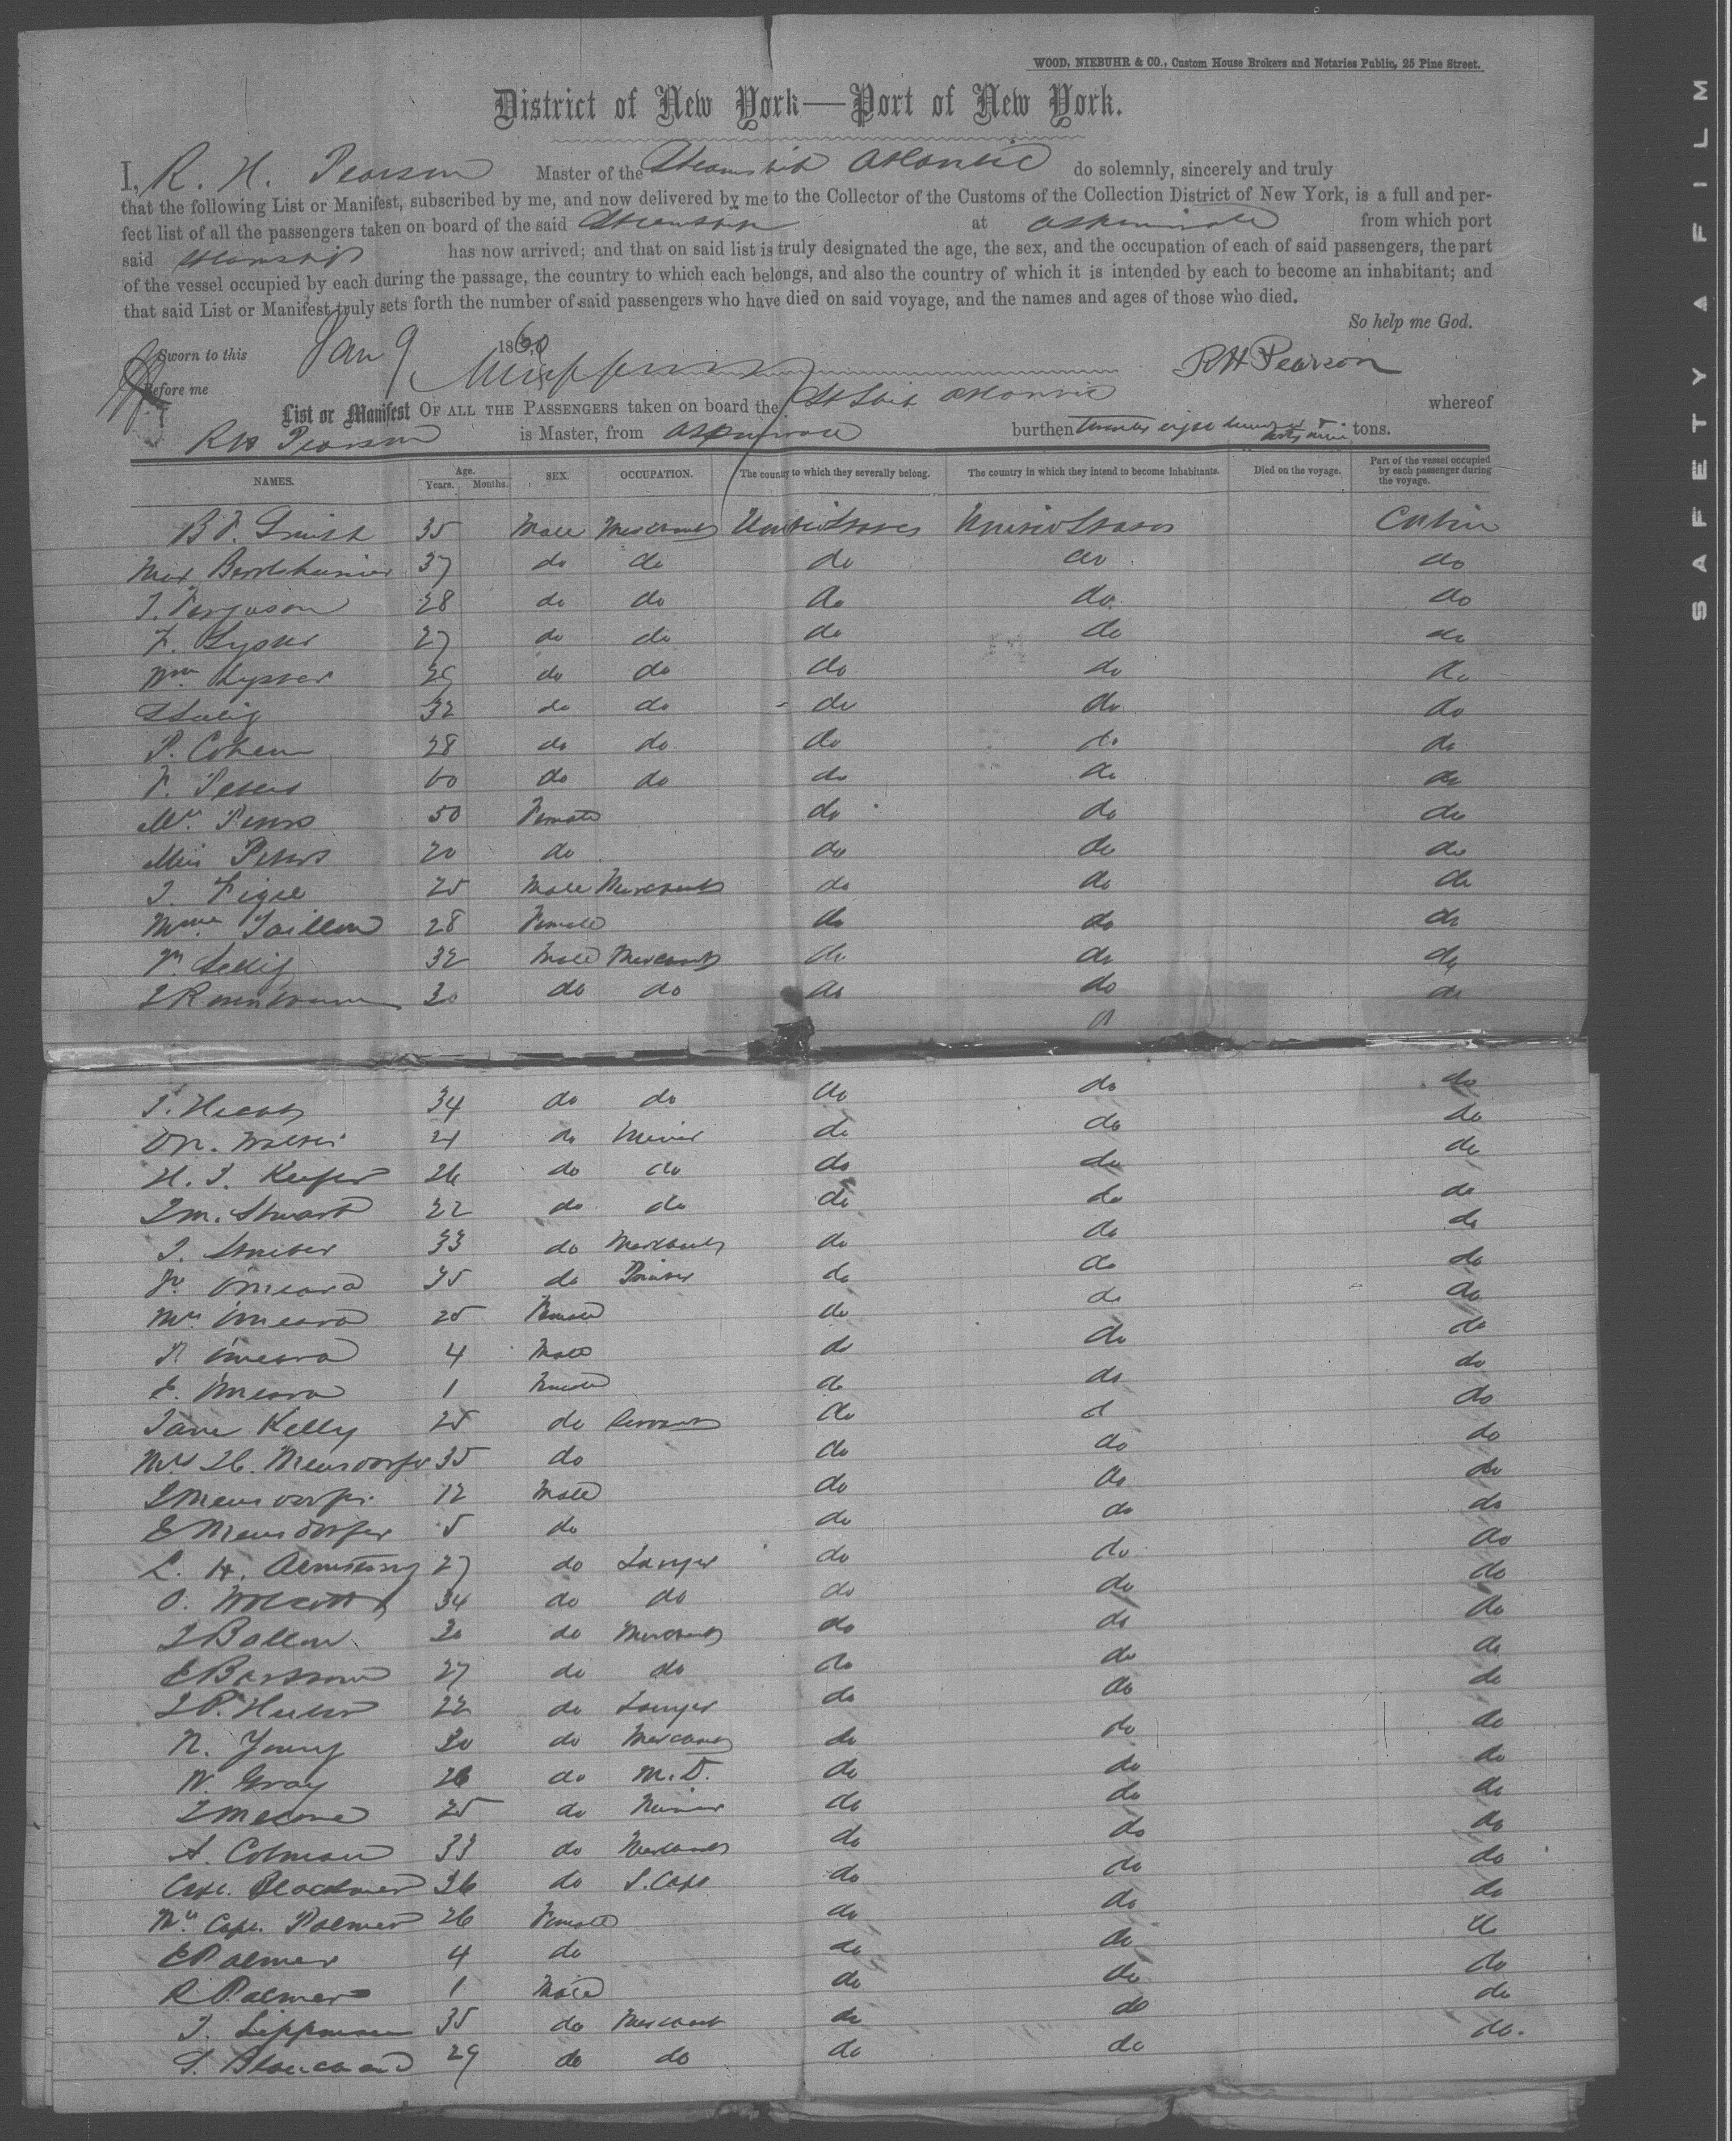 WOOD, NIEBUHR & CO., Custom House Brokers and Notaries Public, 25 Pine Street.
District of New York—Port of New York.
I, R. H. Pearson Master of the Steamship Atlantic do solemnly, sincerely and truly
that the following List or Manifest, subscribed by me, and now delivered by me to the Collector of the Customs of the Collection District of New York, is a full and per-
fect list of all the passengers taken on board of the said Steamship at Aspinwall from which port
said Steamship has now arrived; and that on said list is truly designated the age, the sex, and the occupation of each of said passengers, the part
of the vessel occupied by each during the passage, the country to which each belongs, and also the country of which it is intended by each to become an inhabitant; and
that said List or Manifest truly sets forth the number of said passengers who have died on said voyage, and the names and ages of those who died.
So help me God.
Sworn to this Jan 9 1860
Before me R H Pearson
List or Manifest OF ALL THE PASSENGERS taken on board the St Ship Atlantic whereof
R H Pearson is Master, from Aspinwall burthen twenty eight hundred & forty nine tons.
NAMES. Age. Years. Months. SEX. OCCUPATION. The country to which they severally belong. The country in which they intend to become inhabitants. Died on the voyage. Part of the vessel occupied by each passenger during the voyage.
B F. Smith 35 Male Merchant United States United States Cabin
Max 37 do do do do do
J. Ferguson 28 do do do do do
F. 27 do do do do do
Wm do do do do do
32 do do do do do
P. Cohen 28 do do do do do
F. Peters 60 do do do do do
Mrs. Peters 50 Female do do do
Miss Peters 20 do do do do
J. Figel 25 Male Merchant do do do
Mme Taillon 28 Female do do do
32 Male Merchant do do do
30 do do do do do
34 do do do do do
24 do Miner do do do
H. J. Keefer 26 do do do do do
J M. Stewart 22 do do do do do
J. 33 do Merchant do do do
OMeara 35 do do do do
Mrs OMeara 25 Female do do do
OMeara 4 Male do do do
E. OMeara 1 Female do do do
Jane Kelly 25 do Servant do d do
Mrs H. Meusdorfer 35 do do do do
J Meusdorfer 12 Male do do do
E Meusdorfer 5 do do do do
L. H. Armstrong 27 do Lawyer do do do
O. Wolcott 34 do do do do do
J Ballou 30 do Merchant do do do
E 27 do do do do do
J P. 22 do Lawyer do do do
N. Young 30 do Merchant do do do
W. Gray 26 do M.D. do do do
25 do Miner do do do
A. Colman 33 do Merchant do do do
Capt. Blackmer 36 do S. Capt do do do
Mrs. Capt. Palmer 26 Female do do do
E Palmer 4 do do do do
R Palmer 1 Male do do do
J. Lippman 35 do Merchant do do do
S. Blanchard 29 do do do do do.
SAFETY FILM